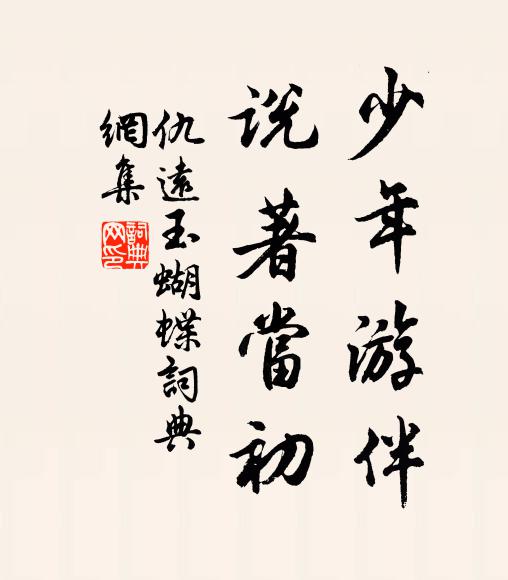 少年游伴
説著當初
仇遠玉蝴蝶詞典
網集
詞典
网印